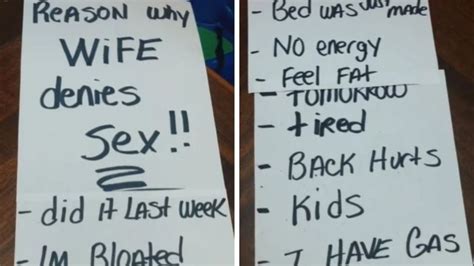 REASON why
WiFE
denies
Sex!!
- did iT LAST week
- IM BloATed
- Bed WAS JUST made
- NO eNergy
- Feel FAT
- TOMORROW
- tired
- BACK HurtS
- Kids
- I HAVE GAS